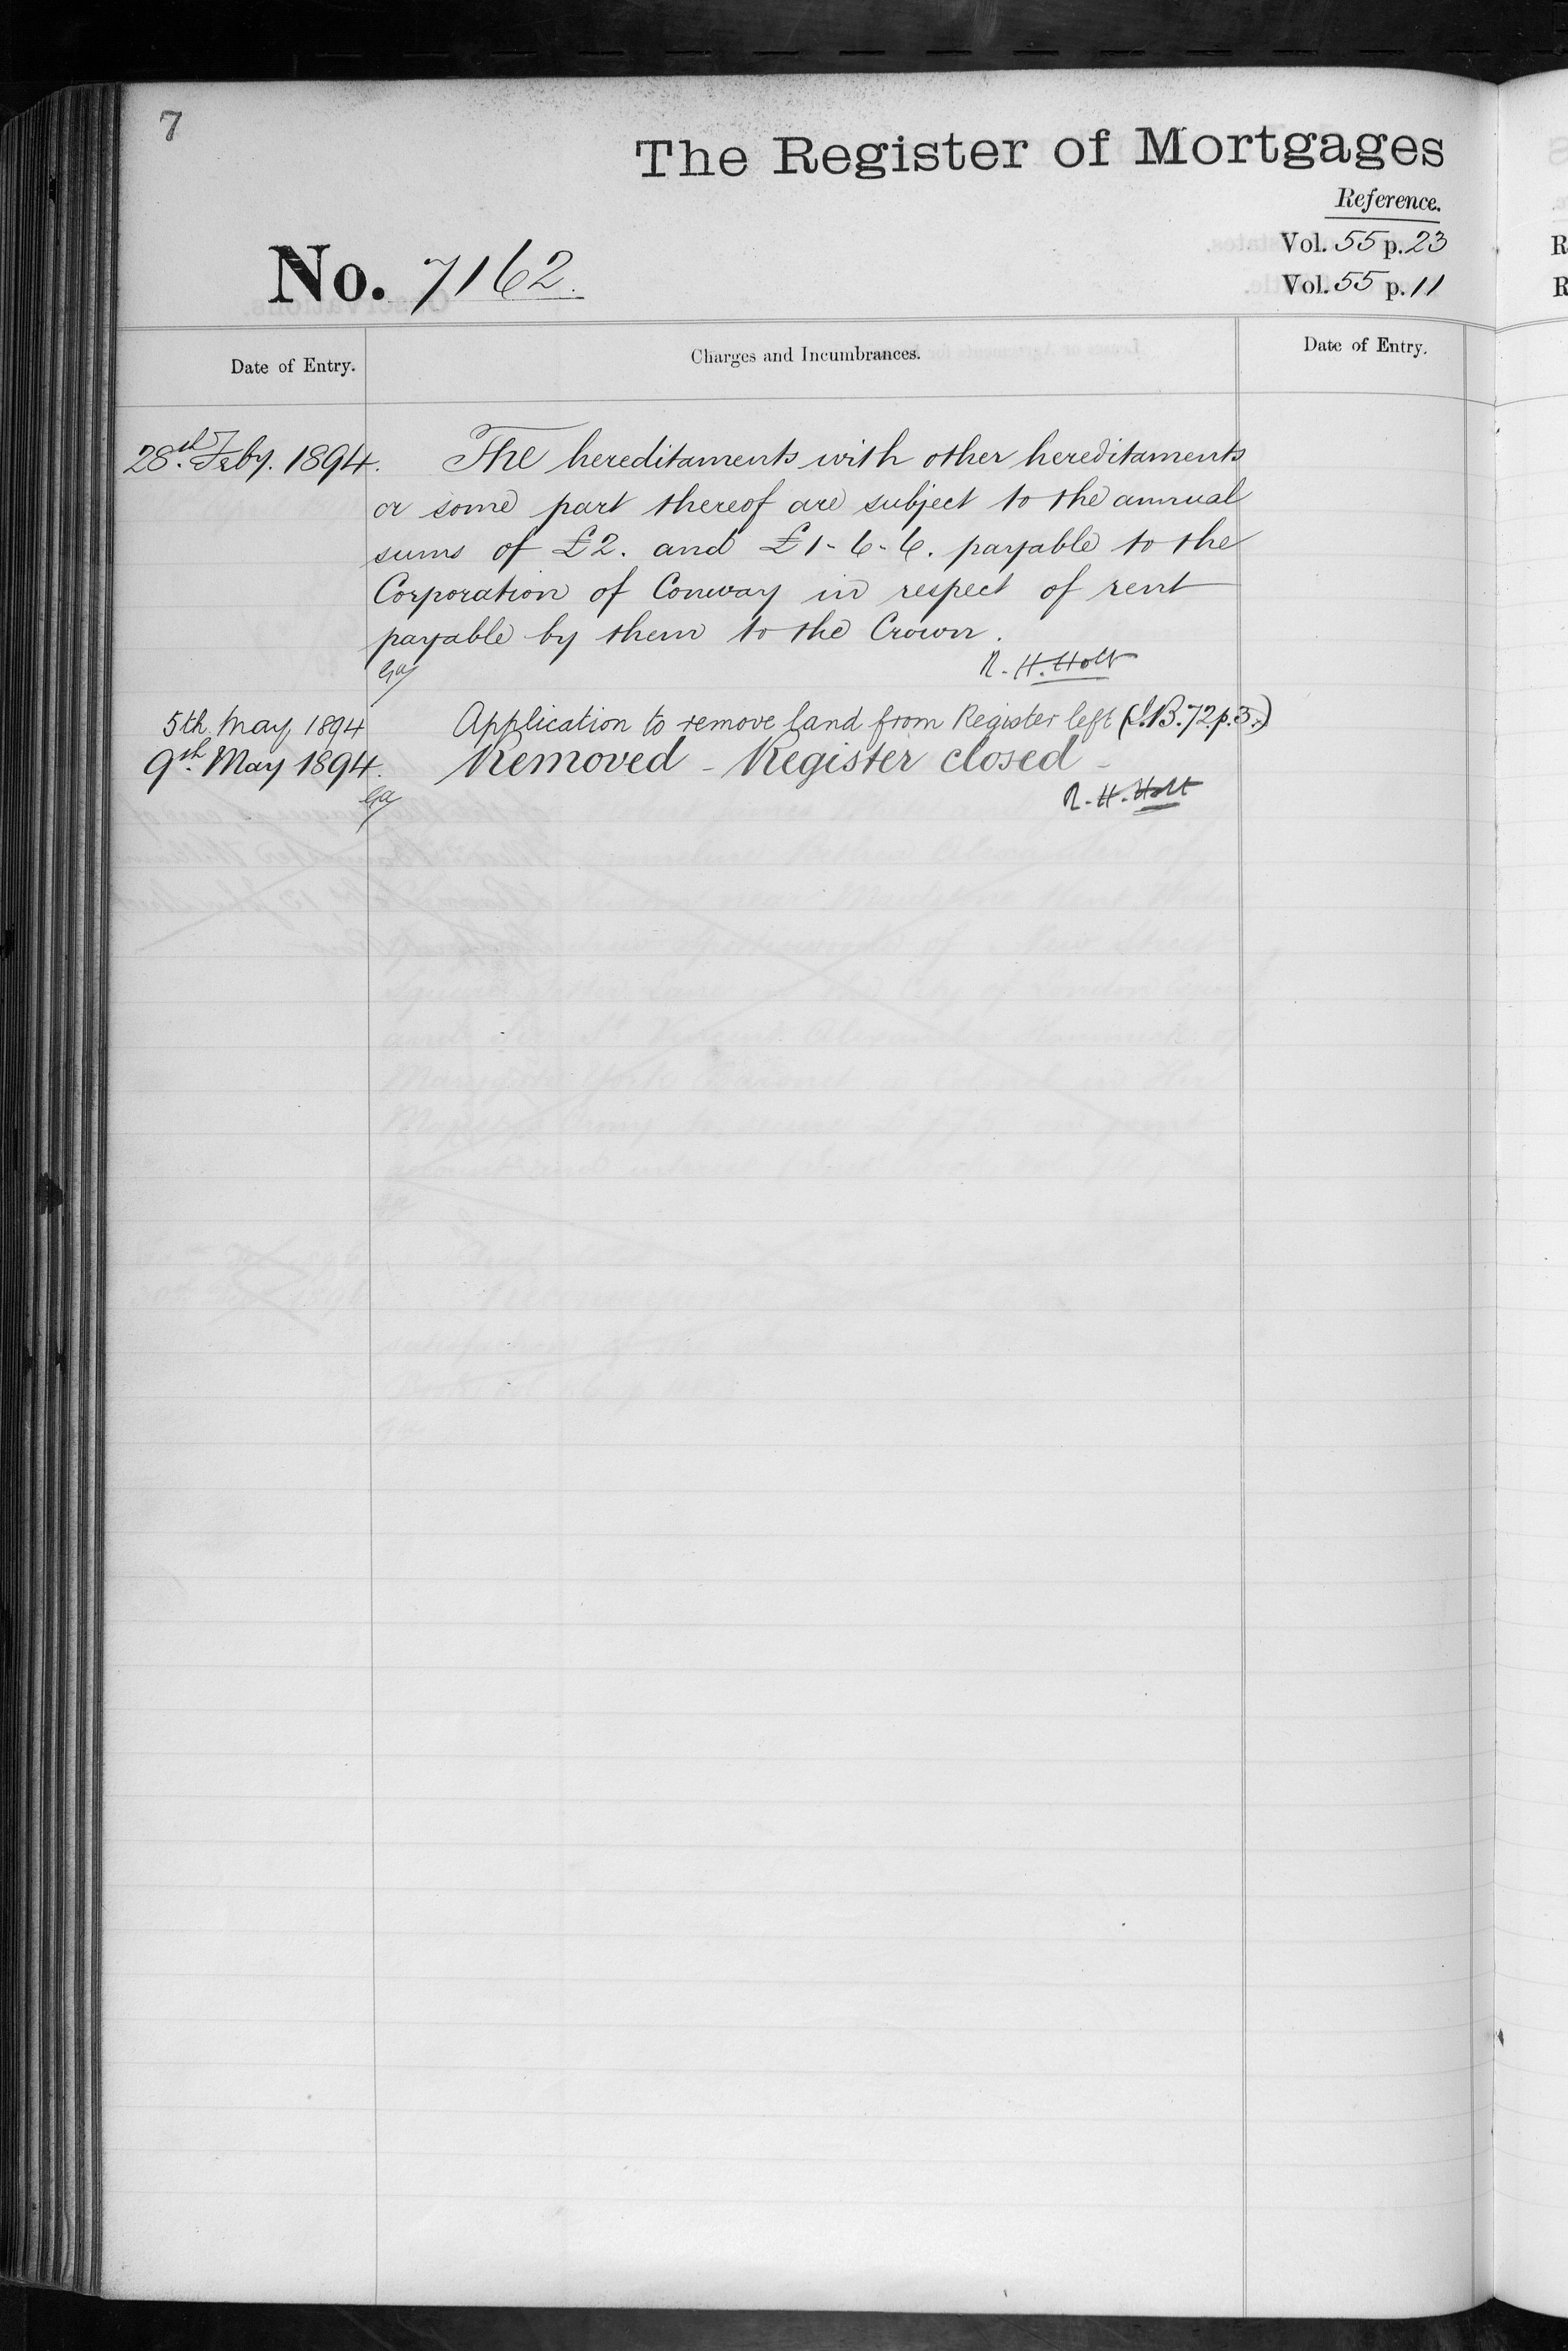 7
The Register of Mortgages
Reference.
Vol. 55 p. 23
No. 7162.
Vol. 55 p. 11
Date of Entry. Charges and Incumbrances. Date of Entry.
28th Feby. 1894. The hereditaments with other hereditaments
or some part thereof are subject to the annual
sums of £2. and £1-6-6. payable to the
Corporation of Conway in respect of rent
payable by them to the Crown.
R. H. Holt
5th May 1894 Application to remove land from Register left (L.B. 72 p. 3.)
9th May 1894. Removed - Register closed -
R. H. Holt